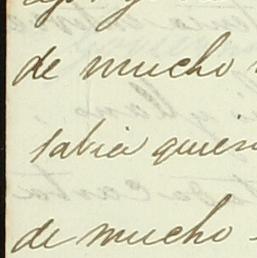 de mucho
sabia quien
de mucho